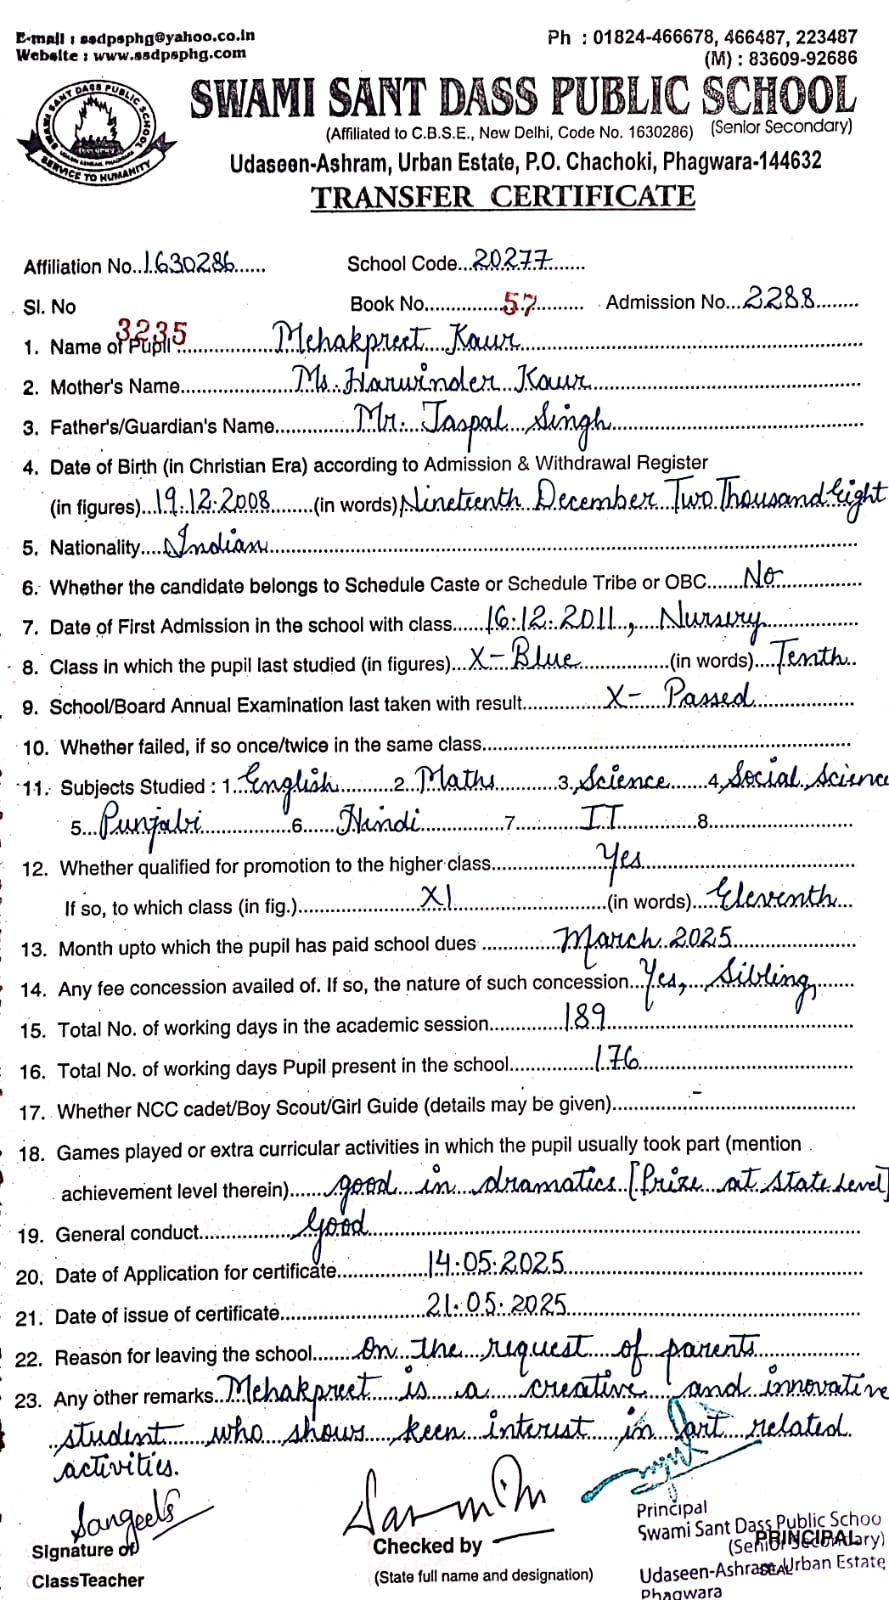 E-mail : ssdpsphg@yahoo.co.in
Website : www.ssdpsphg.com
Ph : 01824-466678, 466487, 223487
(M) : 83609-92686
SWAMI SANT DASS PUBLIC SCHOOL
(Affiliated to C.B.S.E., New Delhi, Code No. 1630286) (Senior Secondary)
Udaseen-Ashram, Urban Estate, P.O. Chachoki, Phagwara-144632
TRANSFER CERTIFICATE
SWAMI SANT DASS PUBLIC SCHOOL
SERVICE TO HUMANITY
Affiliation No. 1630286 School Code 20277
Sl. No 3235 Book No. 57 Admission No. 2288
1. Name of Pupil Mehakpreet Kaur
2. Mother's Name Ms. Harwinder Kaur
3. Father's/Guardian's Name Mr. Jaspal Singh
4. Date of Birth (in Christian Era) according to Admission & Withdrawal Register
(in figures) 19.12.2008 (in words) Nineteenth December Two Thousand Eight
5. Nationality Indian
6. Whether the candidate belongs to Schedule Caste or Schedule Tribe or OBC No
7. Date of First Admission in the school with class 16.12.2011, Nursery
8. Class in which the pupil last studied (in figures) X-Blue (in words) Tenth
9. School/Board Annual Examination last taken with result X- Passed
10. Whether failed, if so once/twice in the same class
11. Subjects Studied : 1. English 2. Maths 3. Science 4. Social Science
5. Punjabi 6. Hindi 7. IT 8.
12. Whether qualified for promotion to the higher class Yes
If so, to which class (in fig.) XI (in words) Eleventh
13. Month upto which the pupil has paid school dues March 2025
14. Any fee concession availed of. If so, the nature of such concession Yes, Sibling
15. Total No. of working days in the academic session 189
16. Total No. of working days Pupil present in the school 176
17. Whether NCC cadet/Boy Scout/Girl Guide (details may be given) -
18. Games played or extra curricular activities in which the pupil usually took part (mention
achievement level therein) good in dramatics [Prize at State Level]
19. General conduct Good
20. Date of Application for certificate 14.05.2025
21. Date of issue of certificate 21.05.2025
22. Reason for leaving the school On the request of parents
23. Any other remarks Mehakpreet is a creative and innovative
student who shows keen interest in art related
activities.
Sangeeta
Signature of
ClassTeacher
Checked by
(State full name and designation)
Principal
Swami Sant Dass Public Schoo
PRINCIPAL
(Senior Secondary)
SEAL
Udaseen-Ashram, Urban Estate
Phagwara